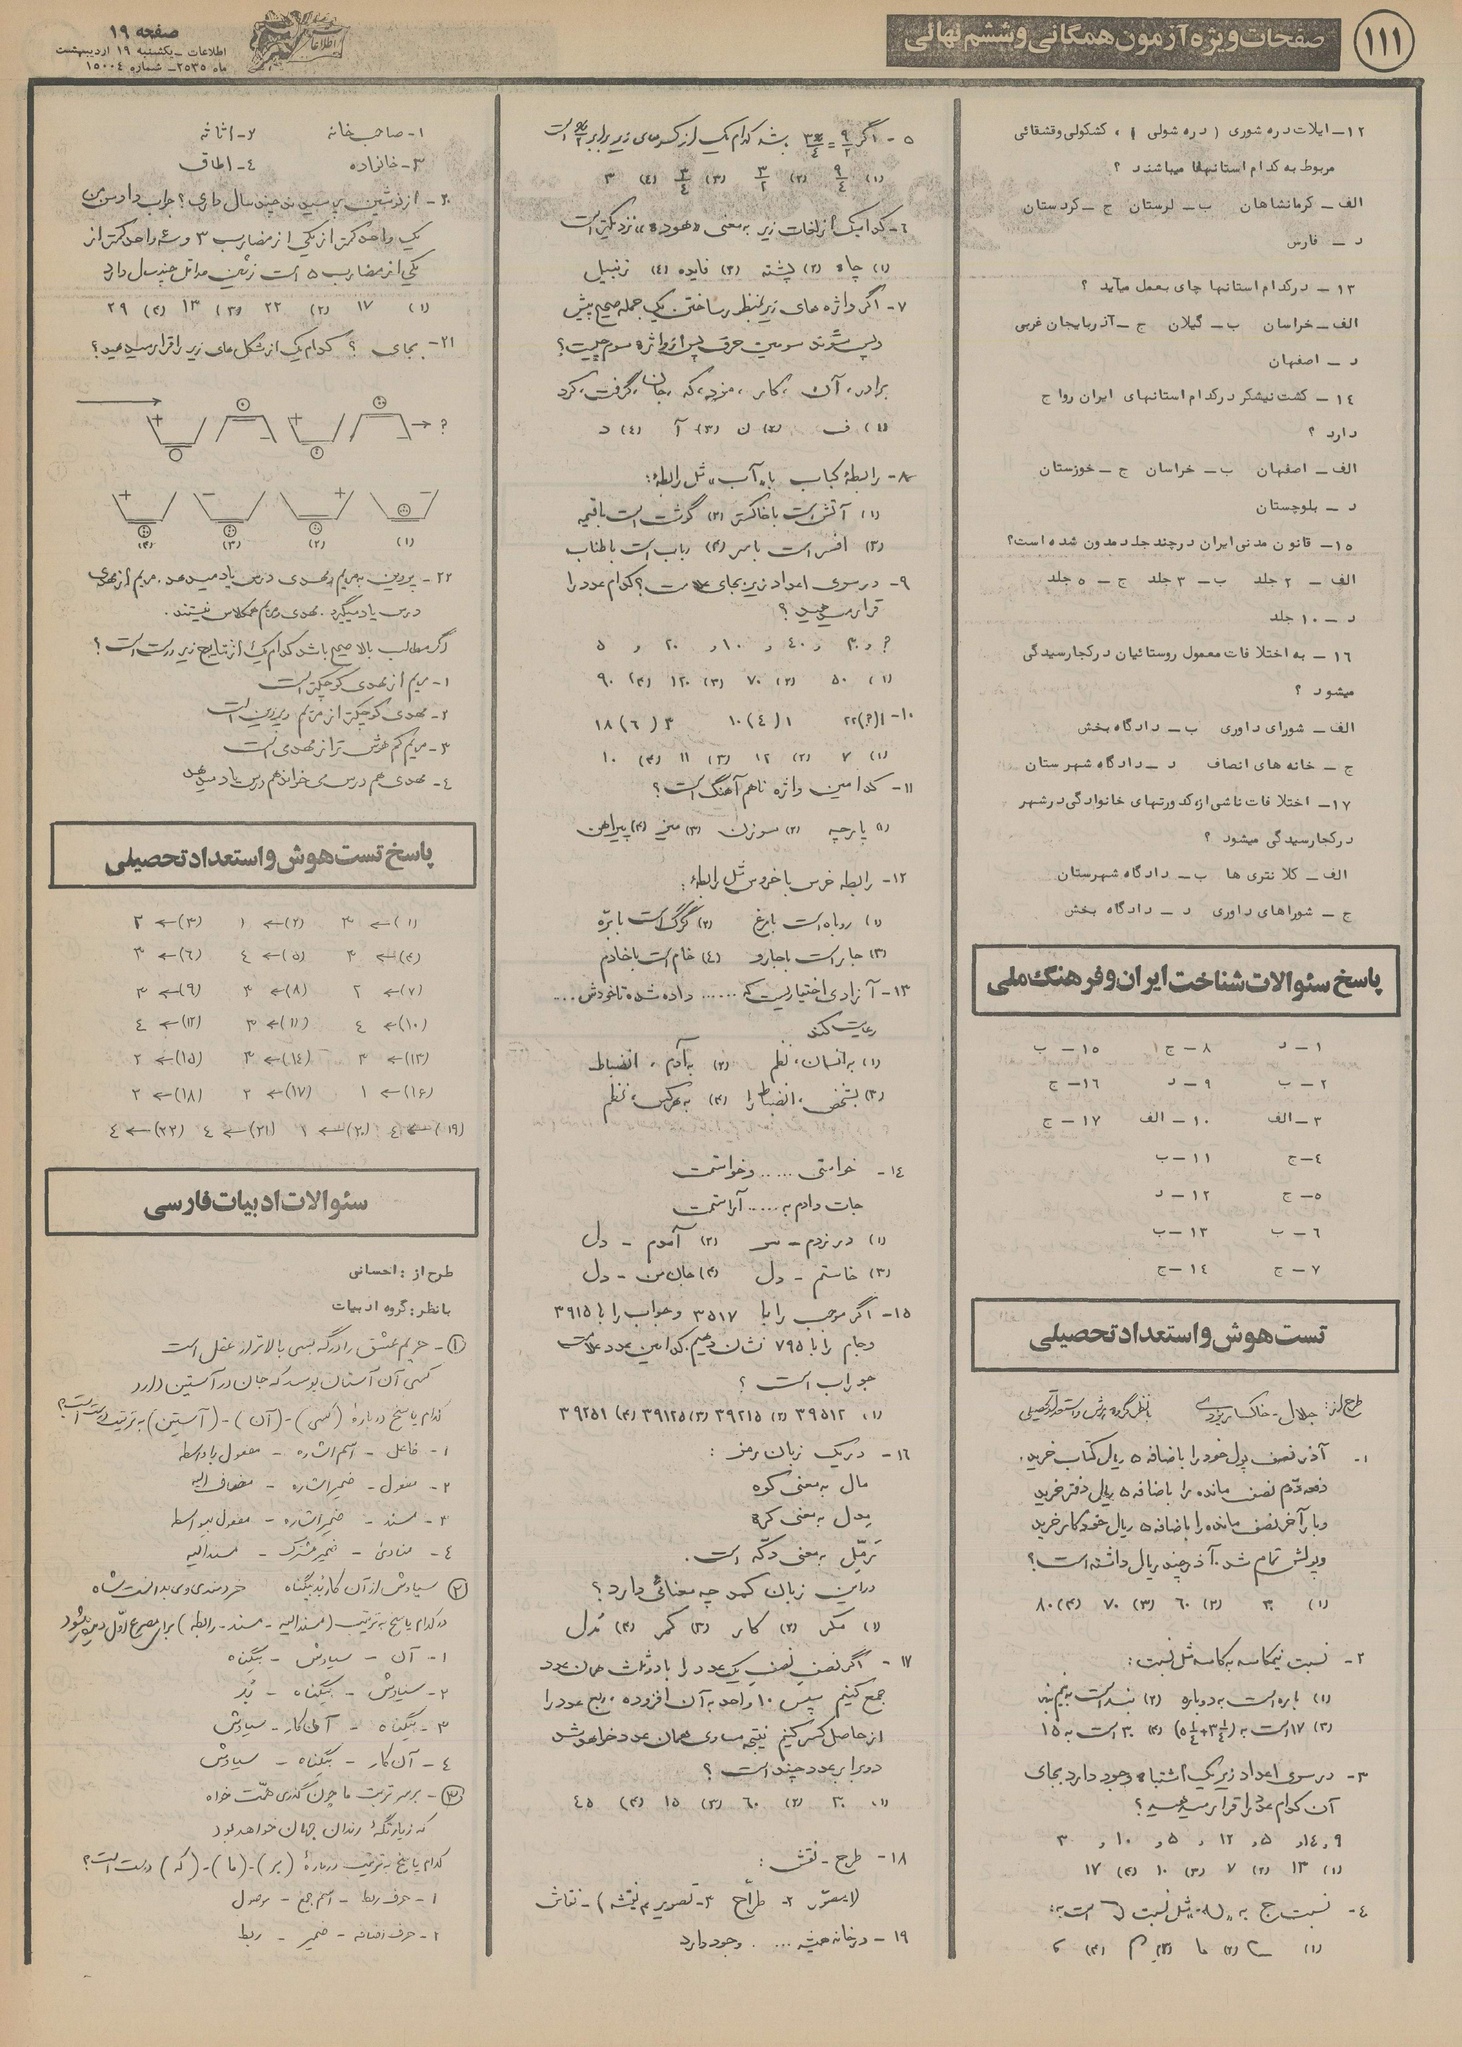 ۱۱۱
صفحات ویژه آزمون همگانی و ششم نهائی
صفحه ۱۹
اطلاعات ـ یکشنبه ۱۹ اردیبهشت
ماه ۲۵۳۵ ـ شماره ۱۵۰۰۴
۱۲ـ ایلات دره شوری ( دره شولی ) ، کشکولی و قشقائی
مربوط به کدام استانها میباشند ؟
الف ـ کرمانشاهان ب ـ لرستان ج ـ کردستان
د ـ فارس
۱۳ ـ در کدام استانها چای بعمل میآید ؟
الف ـ خراسان ب ـ گیلان ج ـ آذربایجان غربی
د ـ اصفهان
۱۴ ـ کشت نیشکر در کدام استانهای ایران رواج
دارد ؟
الف ـ اصفهان ب ـ خراسان ج ـ خوزستان
د ـ بلوچستان
۱۵ـ قانون مدنی ایران در چند جلد مدون شده است؟
الف ـ ۲ جلد ب ـ ۳ جلد ج ـ ۵ جلد
د ـ ۱۰ جلد
۱۶ ـ به اختلافات معمول روستائیان در کجا رسیدگی
میشود ؟
الف ـ شورای داوری ب ـ دادگاه بخش
ج ـ خانه های انصاف د ـ دادگاه شهرستان
۱۷ـ اختلافات ناشی از کدورتهای خانوادگی در شهر
در کجا رسیدگی میشود ؟
الف ـ کلانتری ها ب ـ دادگاه شهرستان
ج ـ شوراهای داوری د ـ دادگاه بخش
پاسخ سئوالات شناخت ایران و فرهنگ ملی
۱ ـ د ۸ ـ ج ۱۵ ـ ب
۲ ـ ب ۹ ـ د ۱۶ ـ ج
۳ ـ الف ۱۰ ـ الف ۱۷ ـ ج
۴ـ ج ۱۱ ـ ب
۵ـ ج ۱۲ ـ د
۶ ـ ب ۱۳ ـ ب
۷ ـ ج ۱۴ ـ ج
تست هوش و استعداد تحصیلی
طرح از: جلال ـ خاکسار یزدی بانظر گروه هوش و استعداد تحصیلی
۱ـ آذر نصف پول خود را باضافه ۵ ریال کتاب خرید.
دفعه دوم نصف مانده را باضافه ۵ ریال دفتر خرید
و بار آخر نصف مانده را باضافه ۵ ریال خودکار خرید
و پولش تمام شد. آذر چند ریال داشته است؟
(۱) ۳۰ (۲) ۶۰ (۳) ۷۰ (۴) ۸۰
۲ـ نسبت نیمکاسه به کاسه مثل نسبت:
(۱) پاره است به دوپاره (۲) بند است به نیم بند
(۳) ۱۷ است به (۳ ۱/۴ + ۵ ۱/۴) (۴) ۳۰ است به ۱۵
۳ـ در سری اعداد زیر یک اشتباه وجود دارد بجای
آن کدام عدد را قرار میدهید؟
۹ و ۱۴ و ۵ و ۱۲ و ۵ و ۱۰ و ۳
(۱) ۱۳ (۲) ۷ (۳) ۱۰ (۴) ۱۷
۴ـ نسبت ج به
۵ـ اگر ۹/۲ = ۳x/۴ باشد کدام یک از کسرهای زیر برابر x/۲ است
(۱) ۹/۴ (۲) ۳/۲ (۳) ۳/۴ (۴) ۳
۶ـ کدامیک از لغات زیر به معنی «هوده» نزدیکتر است
(۱) چاه (۲) پشته (۳) فایده (۴) زنبیل
۷ـ اگر واژه های زیر بمنظور ساختن یک جمله صحیح پیش
و پس شوند سومین حرف پس از واژه سوم چیست؟
برادر، آن، کار، مزد، که، جان، گرفت، کرد
(۱) ف (۲) ن (۳) آ (۴) د
۸ـ رابطهٔ کباب با «آب» مثل رابطهٔ:
(۱) آتش است با خاکستر (۲) گوشت است با قیمه
(۳) افسر است با سر (۴) رباب است با طناب
۹ـ در سری اعداد زیر بجای علامت ؟ کدام عدد را
قرار میدهید؟
؟ و ۳۰ و ۴۰ و ۱۰ و ۲۰ و ۵
(۱) ۵۰ (۲) ۷۰ (۳) ۱۲۰ (۴) ۹۰
۱۰ـ ۱(؟)۲۲ ۱(۴)۱۰ ۳(۶)۱۸
(۱) ۷ (۲) ۱۲ (۳) ۱۱ (۴) ۱۰
۱۱ـ کدامین واژه ناهم آهنگ است؟
(۱) پارچه (۲) سوزن (۳) میز (۴) پیراهن
۱۲ـ رابطه خرس با خروس مثل رابطهٔ:
(۱) روباه است با مرغ (۲) گرگ است با بره
(۳) جابر است با جارو (۴) خام است با خادم
۱۳ـ آزادی اختیاریست که ...... داده شده تا خودش ...
رعایت کند
(۱) به انسان، نظم (۲) به آدم ، انضباط
(۳) بشخص ، انضباط را (۴) به هرکس، نظم
۱۴ـ خواستی ..... و خواستمت
جات دادم به ..... آراستمت
(۱) در نزدم ـ سر (۲) آمدم ـ دل
(۳) خاستم ـ دل (۴) جان من ـ دل
۱۵ـ اگر موجب را با ۳۵۱۷ و جواب را با ۳۹۱۵
و جام را با ۷۹۵ نشان دهیم کدامین عدد علامت
جوراب است ؟
(۱) ۳۹۵۱۲ (۲) ۳۹۲۱۵ (۳) ۳۹۱۲۵ (۴) ۳۹۲۵۱
۱۶ـ در یک زبان رمز :
مال به معنی کوه
یدل به معنی کره
یَرمّل به معنی دکّه است.
در این زبان کمد چه معنائی دارد؟
(۱) مکر (۲) کار (۳) کمر (۴) مُدل
۱۷ـ اگر نصفِ نصفِ یک عدد را با دو ثلث همان عدد
جمع کنیم سپس ۱۰ واحد به آن افزوده ، ربع عدد را
از حاصل کسر کنیم نتیجه مساوی همان عدد خواهد شد
دو برابر عدد چند است ؟
(۱) ۳۰ (۲) ۶۰ (۳) ۱۵ (۴) ۴۵
۱۸ـ طرح ـ نقش :
(۱ـ مصوّر ۲ـ طراح ۳ـ تصویر ۴ـ نقشه) ـ نقاش
۱۹ـ در خانه همیشه .... وجود دارد
۱ـ صاحبخانه ۲ـ اثاثه
۳ـ خانواده ۴ـ اطاق
۲۰ـ از نوشین پرسیدند چند سال داری؟ جواب داد سن من
یک واحد کمتر از یکی از مضارب ۳ و سه واحد کمتر از
یکی از مضارب ۵ است نوشین حداقل چند سال دارد
(۱) ۱۷ (۲) ۲۲ (۳) ۱۳ (۴) ۲۹
۲۱ـ بجای ؟ کدام یک از شکل های زیر را قرار میدهید؟
؟
(۱) (۲) (۳) (۴)
۲۲ـ پروین به مریم و مهدی درس یاد میدهد. مریم از مهدی
درس یاد میگیرد. مهدی و مریم همکلاس نیستند.
اگر مطالب بالا صحیح باشد کدام یک از نتایج زیر درست است؟
۱ـ مریم از مهدی کوچکتر است
۲ـ مهدی کوچکتر از مریم و پروین است
۳ـ مریم کم هوش تر از مهدی است
۴ـ مهدی هم درس می خواند هم درس یاد میدهد
پاسخ تست هوش و استعداد تحصیلی
(۱)← ۳ (۲)← ۱ (۳)← ۲
(۴)← ۳ (۵)← ۴ (۶)← ۳
(۷)← ۲ (۸)← ۳ (۹)← ۳
(۱۰)← ۴ (۱۱)← ۳ (۱۲)← ۴
(۱۳)← ۳ (۱۴)← ۳ (۱۵)← ۲
(۱۶)← ۱ (۱۷)← ۲ (۱۸)← ۲
(۱۹)← ۴ (۲۰)← ۱ (۲۱)← ۴ (۲۲)← ۴
سئوالات ادبیات فارسی
طرح از : احسانی
بانظر : گروه ادبیات
۱ـ حریم عشق را درگه بسی بالاتر از عقل است
کسی آن آستان بوسد که جان در آستین دارد
کدام پاسخ دربارهٔ (کسی) ـ (آن) ـ (آستین) به ترتیب درست است؟
۱ـ فاعل ـ اسم اشاره ـ مفعول باواسطه
۲ـ مفعول ـ ضمیر اشاره ـ مضاف الیه
۳ـ مسند ـ ضمیر اشاره ـ مفعول بیواسطه
۴ـ منادیٰ ـ ضمیر مشترک ـ مسندالیه
۲ سیاوش از آن کار بُد بیگناه خردمندی وی بدانست شاه
در کدام پاسخ به ترتیب (مسندالیه ـ مسند ـ رابطه) برای مصرع اول دیده میشود
۱ـ آن ـ سیاوش ـ بیگناه
۲ـ سیاوش ـ بیگناه ـ بُد
۳ـ بیگناه ـ آن کار ـ سیاوش
۴ـ آن کار ـ بیگناه ـ سیاوش
۳ـ بر سر تربت ما چون گذری همّت خواه
که زیارتگه رندان جهان خواهد بود
کدام پاسخ به ترتیب دربارهٔ (بر) ـ (ما) ـ (که) درست است؟
۱ـ حرف ربط ـ اسم جمع ـ موصول
۲ـ حرف اضافه ـ ضمیر ـ ربط